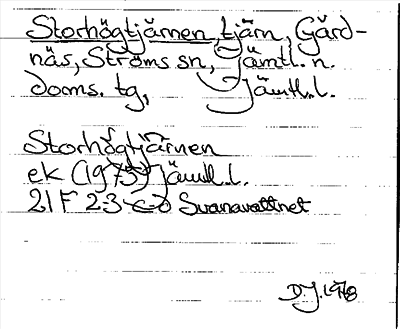 Storhögtjärnen, tjärn, Gård-
näs, Ströms sn, Jämtl. n.
doms. tg, Jämtl.l.
Storhögtjärnen
ek (1975) Jämtl.l.
21 F 2-3 c-d Svanavattnet
D.J. 1978